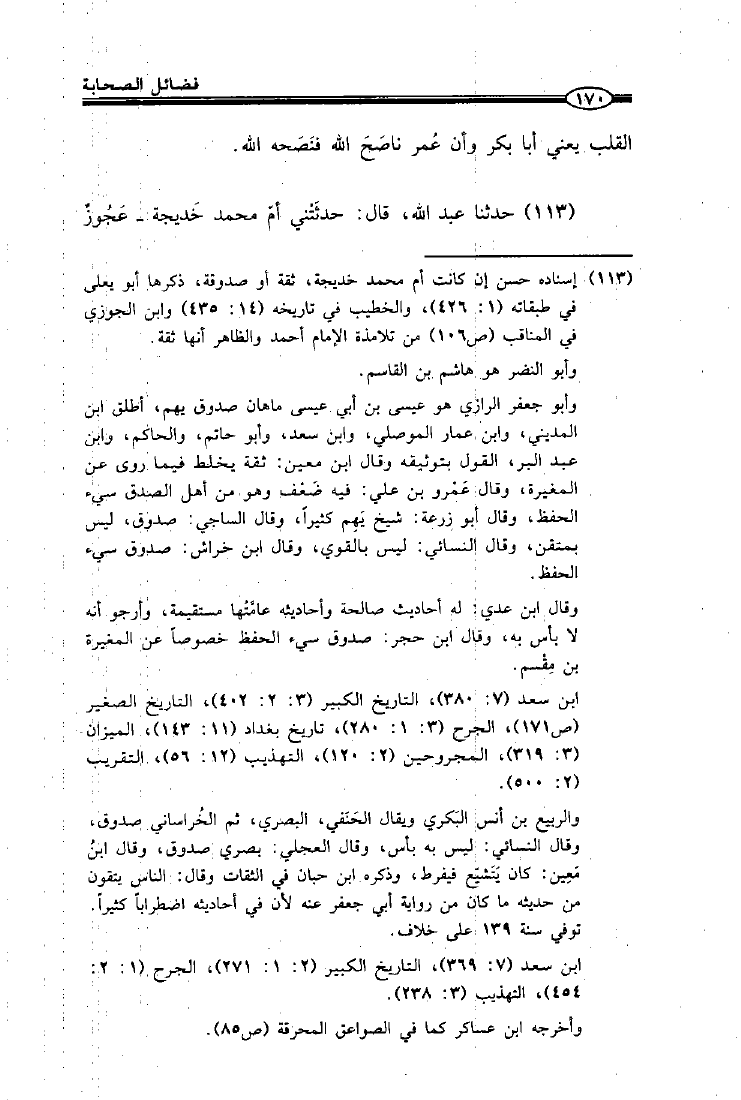 فضائل الصحابة
١٧٠
القلب يعني أبا بكر وأن عُمر ناصَحَ الله فنَصَحه الله.
(١١٣) حدثنا عبد الله، قال: حدثَتْني أمّ محمد خَديجة ـ عَجُوزٌ
(١١٣) إسناده حسن إن كانت أم محمد خديجة، ثقة أو صدوقة، ذكرها أبو يعلى
في طبقاته (١: ٤٢٦)، والخطيب في تاريخه (١٤: ٤٣٥) وابن الجوزي
في المناقب (ص١٠٦) من تلامذة الإمام أحمد والظاهر أنها ثقة.
وأبو النضر هو هاشم بن القاسم.
وأبو جعفر الرازي هو عيسى بن أبي عيسى ماهان صدوق يهم، أطلق ابن
المديني، وابن عمار الموصلي، وابن سعد، وأبو حاتم، والحاكم، وابن
عبد البر، القول بتوثيقه وقال ابن معين: ثقة يخلط فيما روى عن
المغيرة، وقال عَمْرو بن علي: فيه ضَعْف وهو من أهل الصدق سيء
الحفظ، وقال أبو زرعة: شيخ يَهِم كثيراً، وقال الساجي: صدوق، ليس
بمتقن، وقال النسائي: ليس بالقوي، وقال ابن خراش: صدوق سيء
الحفظ.
وقال ابن عدي: له أحاديث صالحة وأحاديثه عامَّتُها مستقيمة، وأرجو أنه
لا بأس به، وقال ابن حجر: صدوق سيء الحفظ خصوصاً عن المغيرة
بن مِقْسم.
ابن سعد (٧: ٣٨٠)، التاريخ الكبير (٣: ٢: ٤٠٢)، التاريخ الصغير
(ص١٧١)، الجرح (٣: ١: ٢٨٠)، تاريخ بغداد (١١: ١٤٣)، الميزان
(٣: ٣١٩)، المجروحين (٢: ١٢٠)، التهذيب (١٢: ٥٦)، التقريب
(٢: ٥٠٠).
والربيع بن أنس البَكري ويقال الحَنَفي، البصري، ثم الخُراساني صدوق،
وقال النسائي: ليس به بأس، وقال العجلي: بصري صدوق، وقال ابنُ
مَعِين: كان يَتَشيّع فيفرط، وذكره ابن حبان في الثقات وقال: الناس يتقون
من حديثه ما كان من رواية أبي جعفر عنه لأن في أحاديثه اضطراباً كثيراً.
توفي سنة ١٣٩ على خلاف.
ابن سعد (٧: ٣٦٩)، التاريخ الكبير (٢: ١: ٢٧١)، الجرح (١: ٢:
٤٥٤)، التهذيب (٣: ٢٣٨).
وأخرجه ابن عساكر كما في الصواعق المحرقة (ص٨٥).